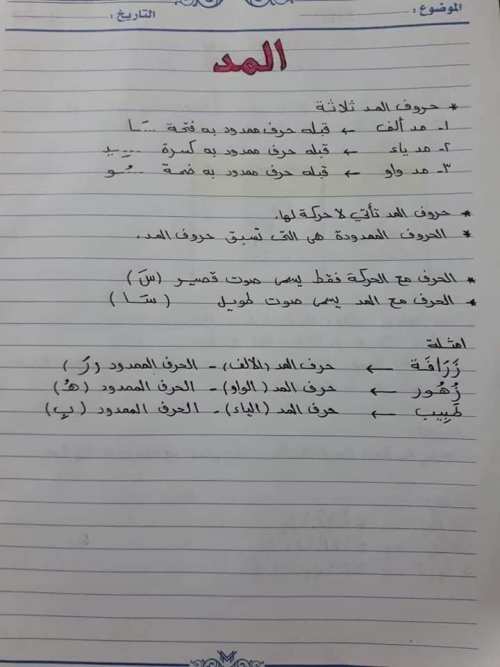 الموضوع: التاريخ:
المد
* حروف المد ثلاثة
١- مد ألف ← قبله حرف ممدود به فتحة ...ـَـا
٢- مد ياء ← قبله حرف ممدود به كسرة ...ـِـيـ
٣- مد واو ← قبله حرف ممدود به ضمة ...ـُـو
* حروف المد تأتي لا حركة لها.
* الحروف الممدودة هى التى تسبق حروف المد.
* الحرف مع الحركة فقط يسمى صوت قصير (سَ)
* الحرف مع المد يسمى صوت طويل (سَـا)
امثلة
زَرَافَة ← حرف المد (الألف) - الحرف الممدود (رَ)
زُهُور ← حرف المد (الواو) - الحرف الممدود (هُ)
طَبِيب ← حرف المد (الياء) - الحرف الممدود (بِ)